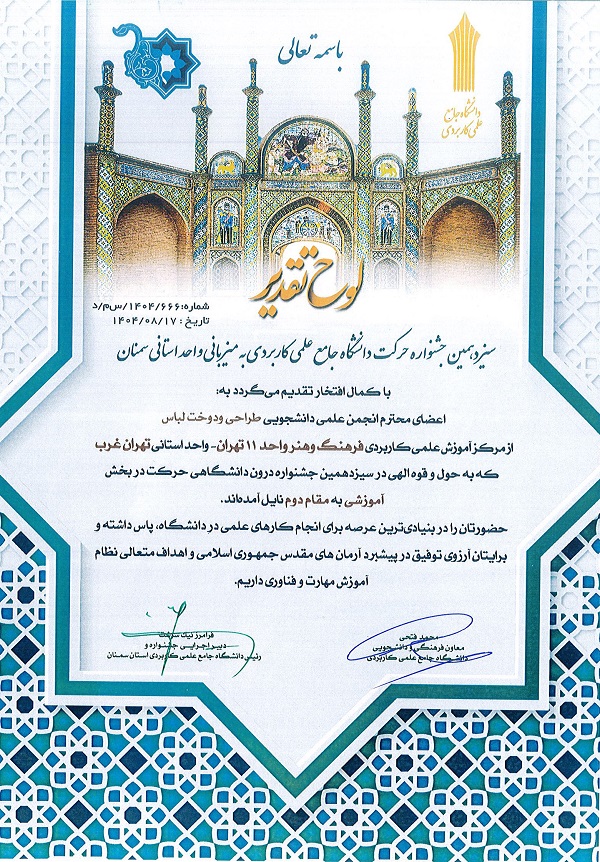 باسمه تعالی
دانشگاه جامع
علمی کاربردی
لوح تقدیر
شماره: ۱۴۰۴/۶۶۶/س‌م/د
تاریخ : ۱۴۰۴/۰۸/۱۷
سیزدهمین جشنواره حرکت دانشگاه جامع علمی کاربردی به میزبانی واحد استانی سمنان
با کمال افتخار تقدیم می‌گردد به:
اعضای محترم انجمن علمی دانشجویی طراحی ودوخت لباس
از مرکز آموزش علمی کاربردی فرهنگ وهنر واحد ۱۱ تهران- واحد استانی تهران غرب
که به حول و قوه الهی در سیزدهمین جشنواره درون دانشگاهی حرکت در بخش
آموزشی به مقام دوم نایل آمده‌اند.
حضورتان را در بنیادی‌ترین عرصه برای انجام کارهای علمی در دانشگاه، پاس داشته و
برایتان آرزوی توفیق در پیشبرد آرمان های مقدس جمهوری اسلامی و اهداف متعالی نظام
آموزش مهارت و فناوری داریم.
محمد فتحی
معاون فرهنگی و دانشجویی
دانشگاه جامع علمی کاربردی
فرامرز نیک سرشت
دبیر اجرایی جشنواره و
رئیس دانشگاه جامع علمی کاربردی استان سمنان